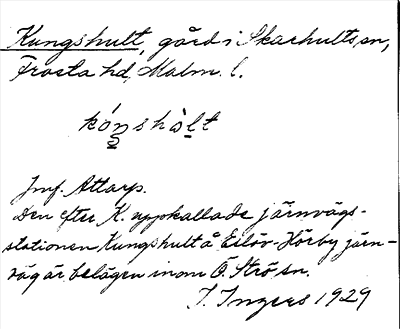 Kungshult, gård i Skarhults sn,
Frosta hd, Malm. l.
kóns hàlt
Jmf. Attarp.
Den efter K. uppkallade järnvägs-
stationen Kungshult å Eslöv-Hörby järn-
väg är belägen inom Ö. Strö sn.
I. Ingers 1929